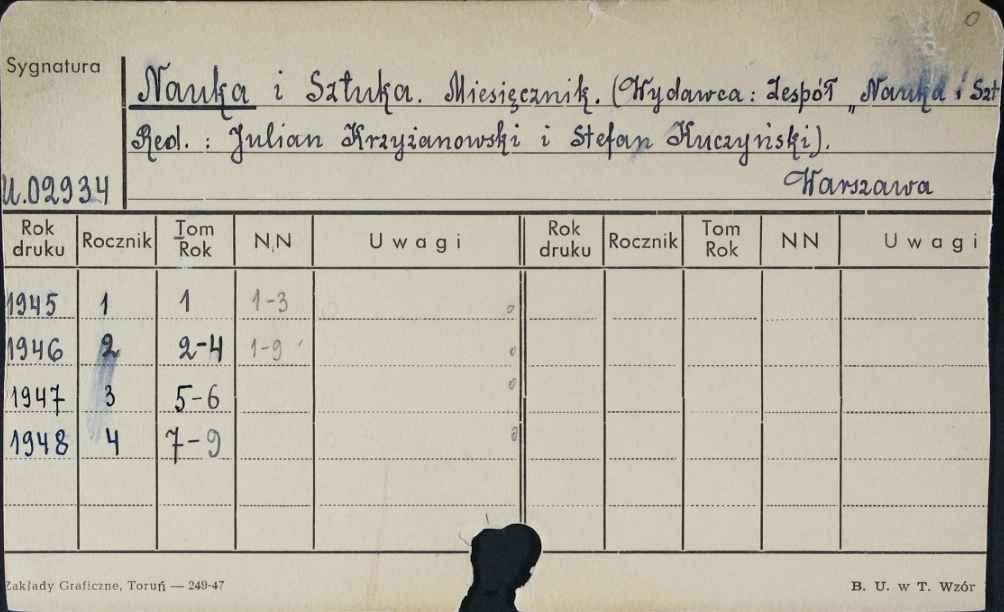 0
Sygnatura
Nauka i Sztuka. Miesięcznik. (Wydawca: Zespół "Nauka i Szt
Red.: Julian Krzyżanowski i Stefan Kuczyński).
U.02934 Warszawa
Rok druku Rocznik Tom Rok N.N Uwagi Rok druku Rocznik Tom Rok NN Uwagi
1945 1 1 1-3
1946 2 2-4 1-9
1947 3 5-6
1948 4 7-9
Zakłady Graficzne, Toruń — 249-47 B. U. w T. Wzór